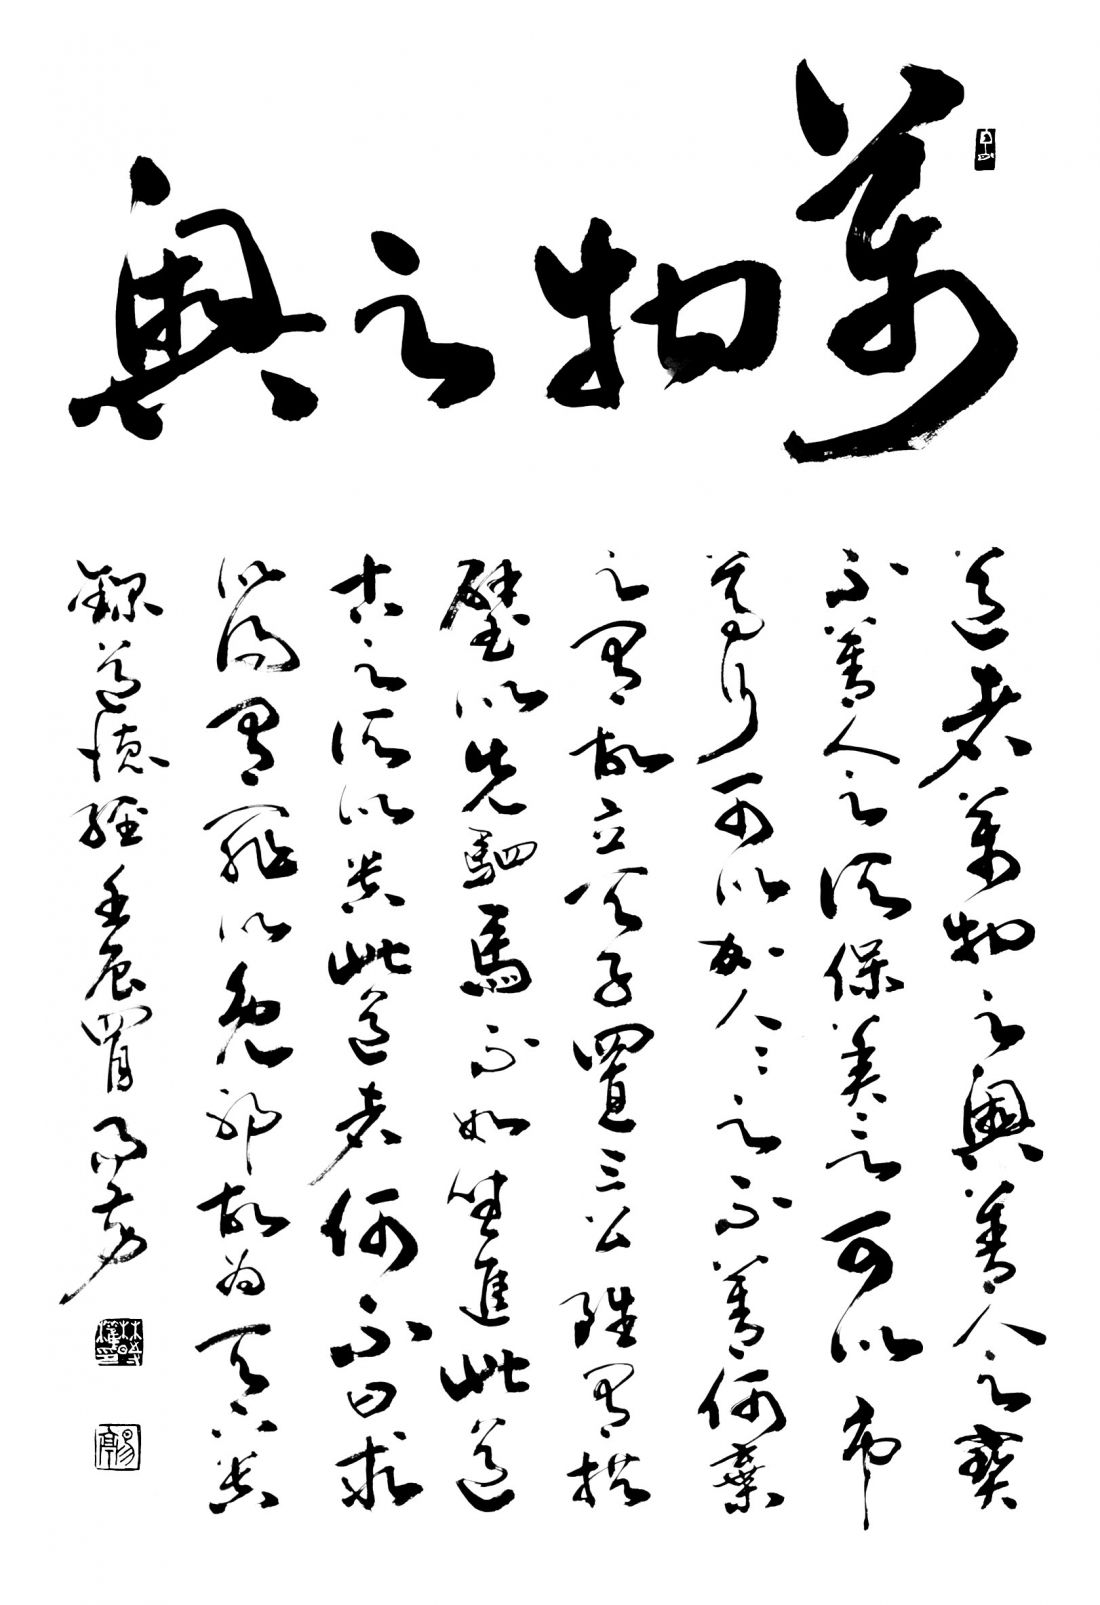 萬物之奧
道者萬物之奧善人之寶
不善人之所保美言可以市
尊行可以加人〻之不善何棄
之有故立天子置三公雖有拱
璧以先駟馬不如坐進此道
古之所以貴此道者何不曰求
以得有罪以免邪故為天下貴
錄道德經壬辰四月